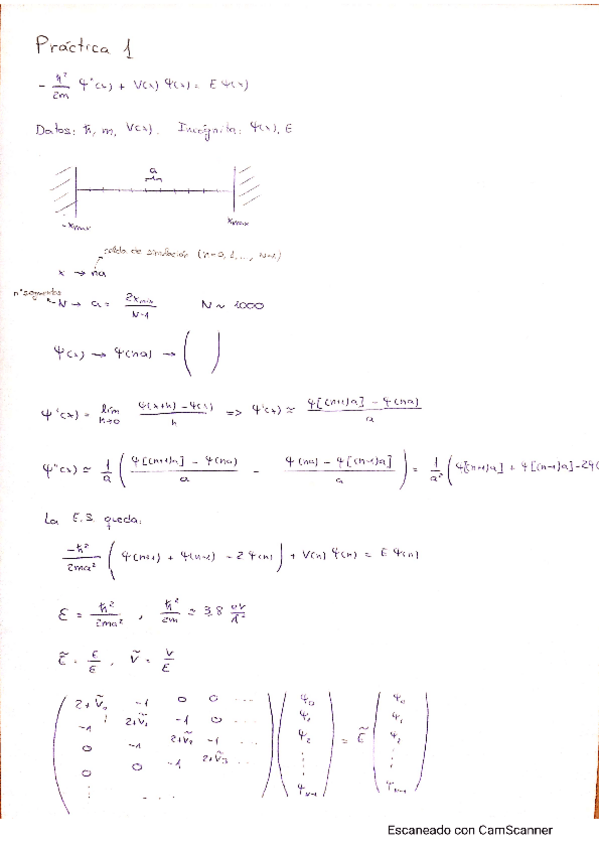 Práctica 1
- ħ²/2m Ψ''(x) + V(x) Ψ(x) = E Ψ(x)
Datos: ħ, m, V(x). Incógnita: Ψ(x), E
a
-xmax xmax
salida de simulación (n=0, 1, ..., N-1)
x → na
nº segmentos
N → a = 2xmax/N-1 N ~ 1000
Ψ(x) → Ψ(na) → ( )
Ψ'(x) = lim h→0 Ψ(x+h) - Ψ(x)/h => Ψ'(x) ≈ Ψ[(n+1)a] - Ψ(na)/a
Ψ''(x) ≈ 1/a ( Ψ[(n+1)a] - Ψ(na)/a - Ψ(na) - Ψ[(n-1)a]/a ) = 1/a² ( Ψ[(n+1)a] + Ψ[(n-1)a] - 2Ψ(
La E.S. queda:
-ħ²/2ma² ( Ψ(n+1) + Ψ(n-1) - 2Ψ(n) ) + V(n) Ψ(n) = E Ψ(n)
ε = ħ²/2ma² , ħ²/2m ≈ 3,8 eV/Å²
Ẽ = E/ε , Ṽ = V/ε
2+Ṽ₀ -1 0 0 ... Ψ₀ Ψ₀
-1 2+Ṽ₁ -1 0 ... Ψ₁ Ψ₁
0 -1 2+Ṽ₂ -1 ... Ψ₂ = Ẽ Ψ₂
0 0 -1 2+Ṽ₃ ... ⋮ ⋮
⋮ ... ΨN-1 ΨN-1
Escaneado con CamScanner